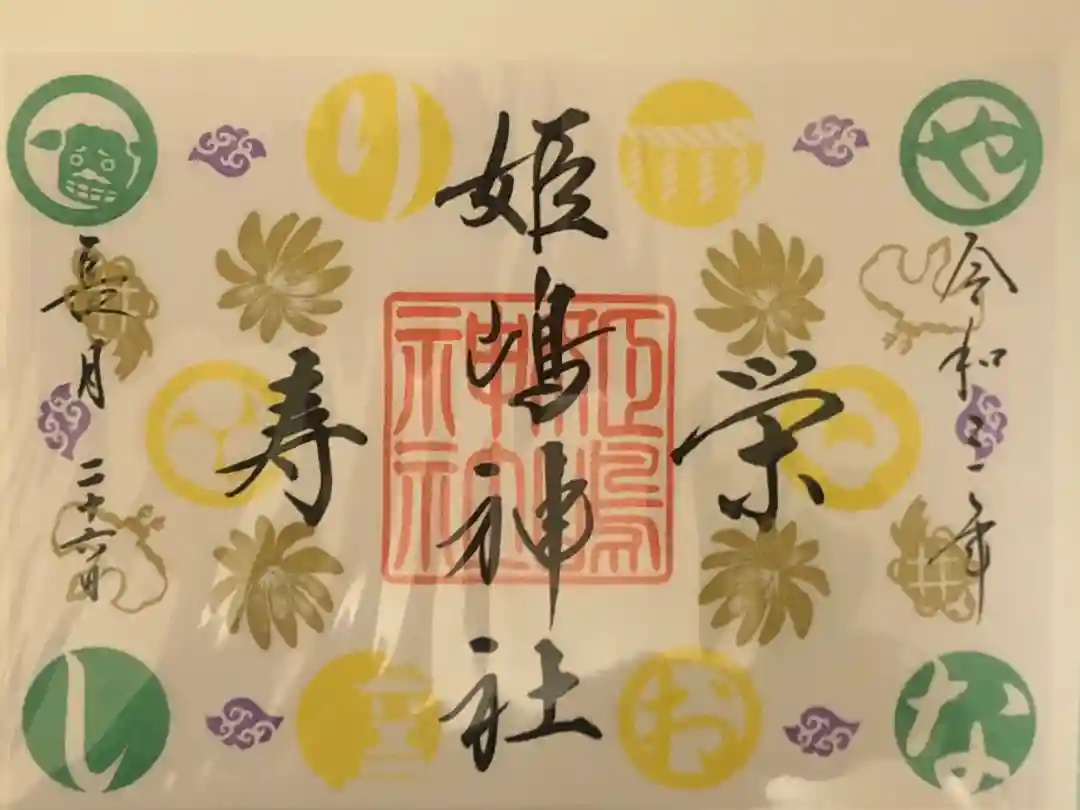 令和三年
栄
姫嶋神社
寿
長月二十六日
姫嶋
神社
や
り
な
お
し